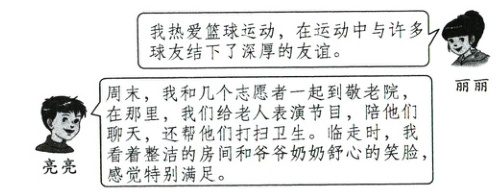 我热爱篮球运动，在运动中与许多
球友结下了深厚的友谊。
丽丽
周末，我和几个志愿者一起到敬老院，
在那里，我们给老人表演节目，陪他们
聊天，还帮他们打扫卫生。临走时，我
看着整洁的房间和爷爷奶奶舒心的笑脸，
感觉特别满足。
亮亮